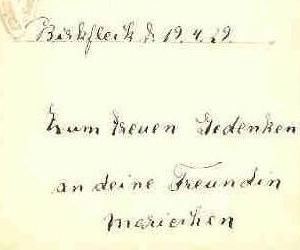 Birkfleck d. 19.4.29.
Zum treuen Gedenken
an deine Freundin
Mariechen